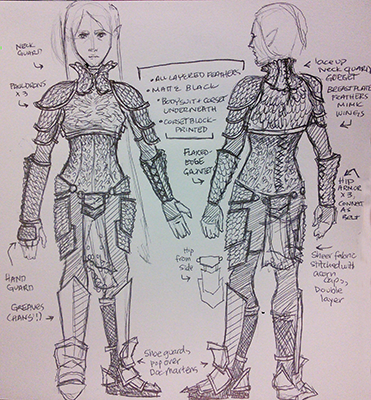 NECK
GUARD
PAULDRONS
x 3
• ALL LAYERED FEATHERS
• MATTE BLACK
• BODYSUIT + CORSET
UNDERNEATH
• CORSET BLOCK-
PRINTED
FLARED-
EDGE
GAUNTLET
LACE UP
NECK GUARD/
GORGET
BREASTPLATE
FEATHERS
MIMIC
WINGS
HIP
ARMOR x 3.
CONNECT
AS
BELT
Sheer fabric
stitched with
acorn
caps,
Double
layer
Hip
from
side
HAND
GUARD
GREAVES
(CHAPS!?)
Shoe guards
pop over
Doc Martens